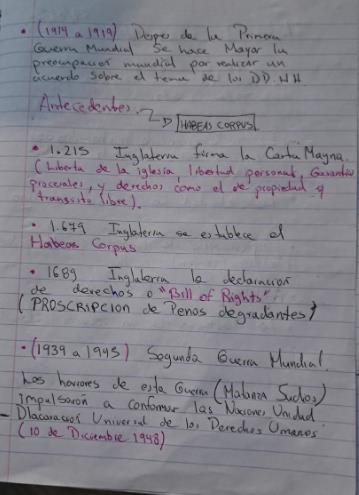 • (1914 a 1919) Despes de la Primera
Guerra Mundial Se hace Mayor la
preocupacion mundial por realizar un
acuerdo sobre el tema de los DD HH
Antecedentes.
HABEAS CORPUS
• 1.215 Inglaterra firma la Carta Magna
(Liberta de la iglesia, libertad personal, Garantias
procesales, y derechos como el de propiedad y
transito libre).
• 1.679 Inglaterra se establece el
Habeas Corpus
• 1689 Inglaterra la declaracion
de derechos o "Bill of Rights"
(PROSCRIPCION de Penas degradantes)
• (1939 a 1945) Segunda Guerra Mundial.
Los horrores de esta Guerra (Matanza)
Impulsaron a conformar las Naciones Unidad
Dlacaración Universal de los Derechos Umanos
(10 de Diciembre 1948)